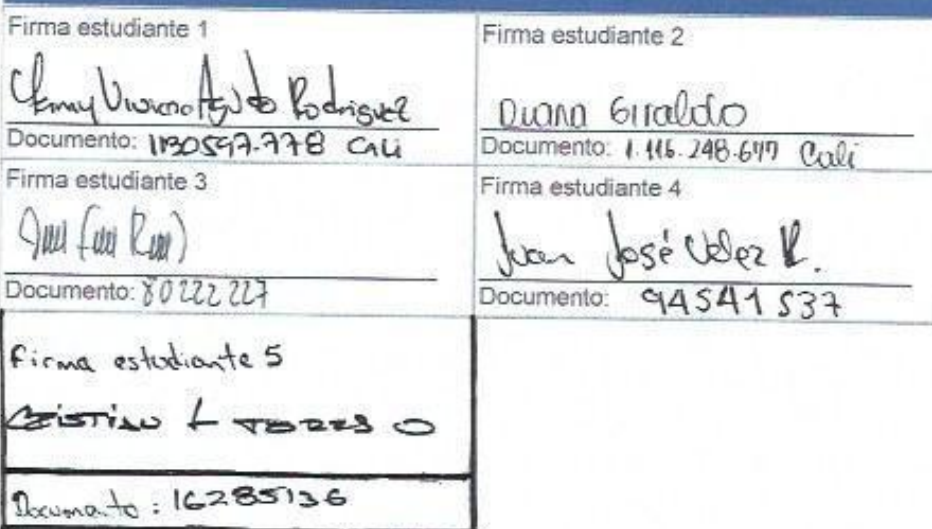 Firma estudiante 1
Jenny Viviana Agudo Rodriguez
Documento: 1130597.778 Cali
Firma estudiante 2
Diana Giraldo
Documento: 1.116.248.677 Cali
Firma estudiante 3
Documento: 80222227
Firma estudiante 4
Juan José Velez R.
Documento: 94541537
Firma estudiante 5
CRISTIAN L TORRES O
Documento: 16285136